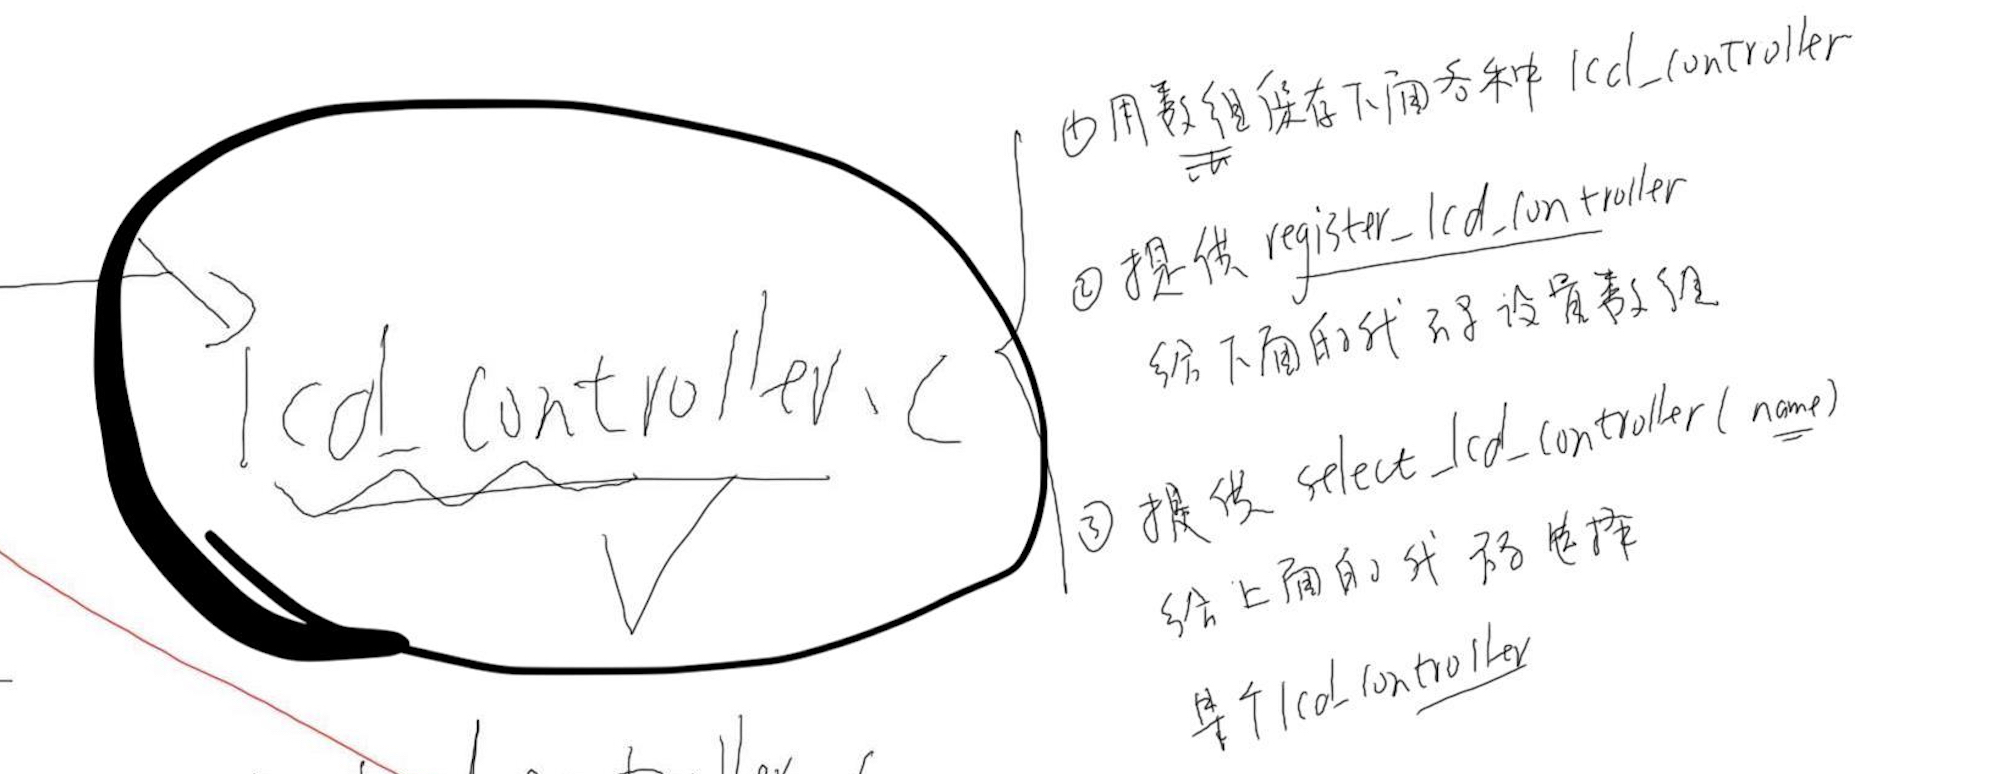 lcd_controller.c
①用数组保存下面各种lcd_controller
②提供register_lcd_controller
给下面的代码设置数组
③提供select_lcd_controller(name)
给上面的代码选择
某个lcd_controller